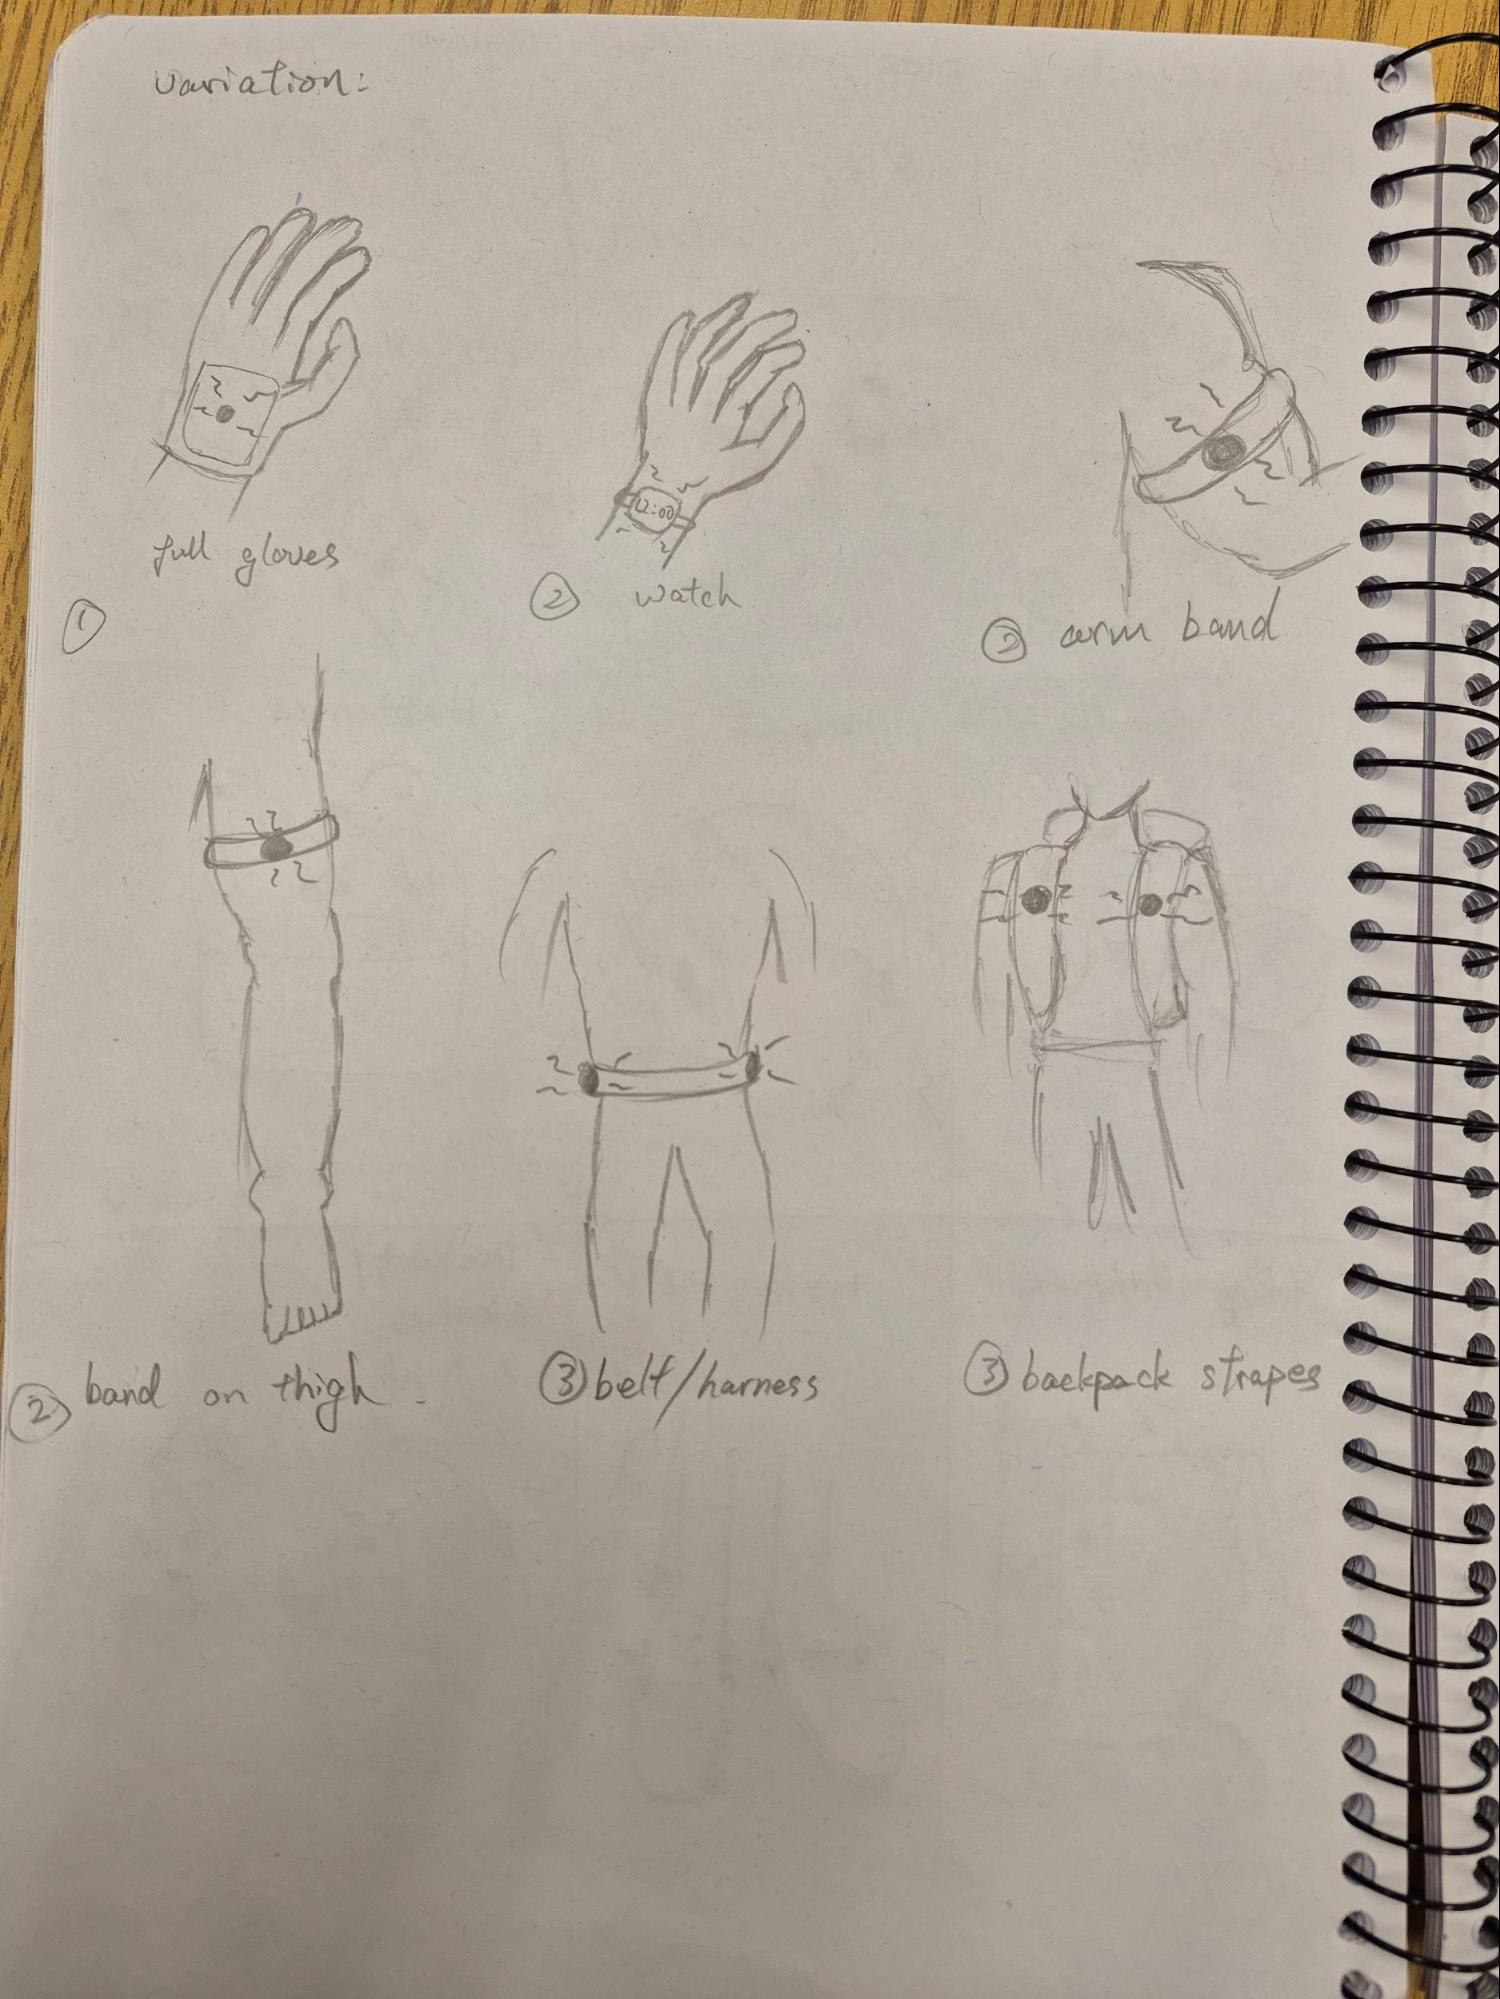 Variation:
full gloves
①
12:00
② watch
② arm band
② band on thigh.
③ belt/harness
③ backpack strapes